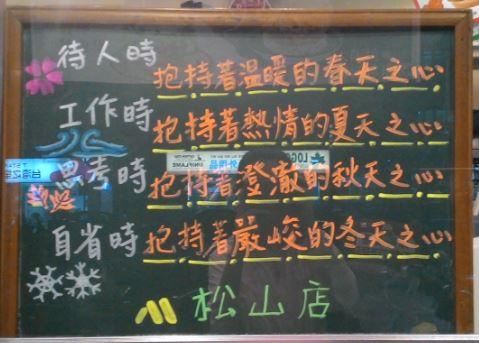 待人時 抱持著溫暖的春天之心
工作時 抱持著熱情的夏天之心
思考時 抱持著澄澈的秋天之心
自省時 抱持著嚴峻的冬天之心
松山店